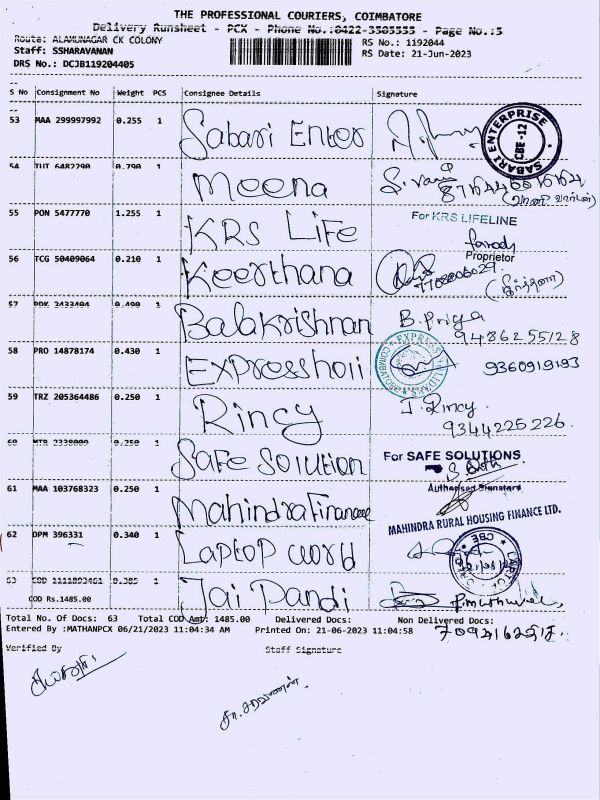 THE PROFESSIONAL COURIERS, COIMBATORE
Delivery Runsheet - PCX - Phone No.:0422-3505555 - Page No.:5
Route: ALAMUNAGAR CK COLONY
RS No.: 1192044
Staff: SSHARAVANAN
RS Date: 21-Jun-2023
DRS No.: DCJB119204405
S No Consignment No Weight PCS Consignee Details Signature
53 MAA 299997992 0.255 1 Sabari Enter
SABARI ENTERPRISE CBE-12
54 0.790 1 Meena
55 PON 5477770 1.255 1 KRS Life
For KRS LIFELINE
Proprietor
56 TCG 50409064 0.210 1 Keerthana
57 0.490 1 Balakrishnan B. Priya
9486255128
58 PRO 14878174 0.430 1 Expresshoii
9360919193
59 TRZ 205364486 0.250 1 Rincy J. Rincy
9344225226.
60 0.250 1 Safe Solution
For SAFE SOLUTIONS
Authorised Signatory
61 MAA 103768323 0.250 1 Mahindra Finance
MAHINDRA RURAL HOUSING FINANCE LTD.
62 DPM 396331 0.340 1 Laptop world
63 COD 0.385 1 Jai Pandi
COD Rs.1485.00
Total No. Of Docs: 63 Total COD Amt: 1485.00 Delivered Docs: Non Delivered Docs:
Entered By :MATHANPCX 06/21/2023 11:04:34 AM Printed On: 21-06-2023 11:04:58
Verified By Staff Signature
சா. சரவணன்.